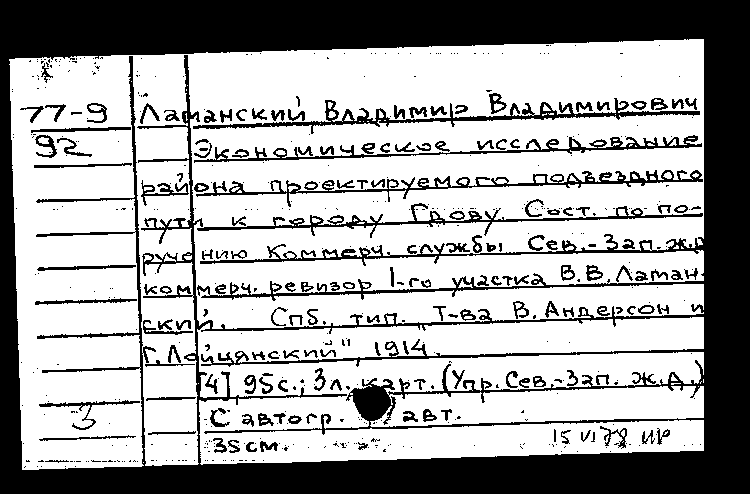 77-9 Ламанский, Владимир Владимирович
92 Экономическое исследование
района проектируемого подъездного
пути к городу Гдову. Сост. по по-
ручению Коммерч. службы Сев.-Зап. ж.д
коммерч. ревизор I-го участка В.В. Ламан-
ский. Спб., тип. „Т-ва В. Андерсон и
Г. Лойцянский", 1914.
[4], 95 с.; 3 л. карт. (Упр. Сев.-Зап. ж.д.)
3 С автогр. авт.
35 см. 15 VI 78